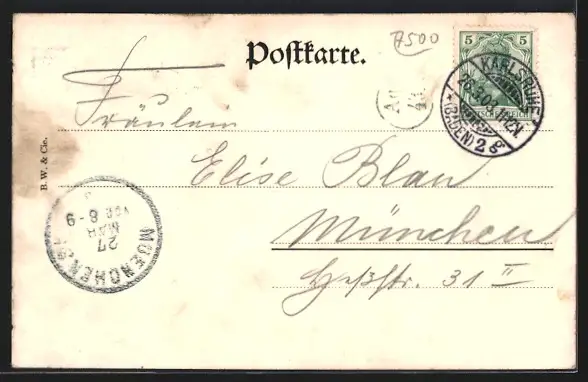 7500
Postkarte.
5 5
KARLSRUHE
(BADEN) 2
Fräulein
Elise Blau
München
Heßstr. 31 II
B. W. & Cie.
MUENCHEN
27
MAR
VOR 8-9